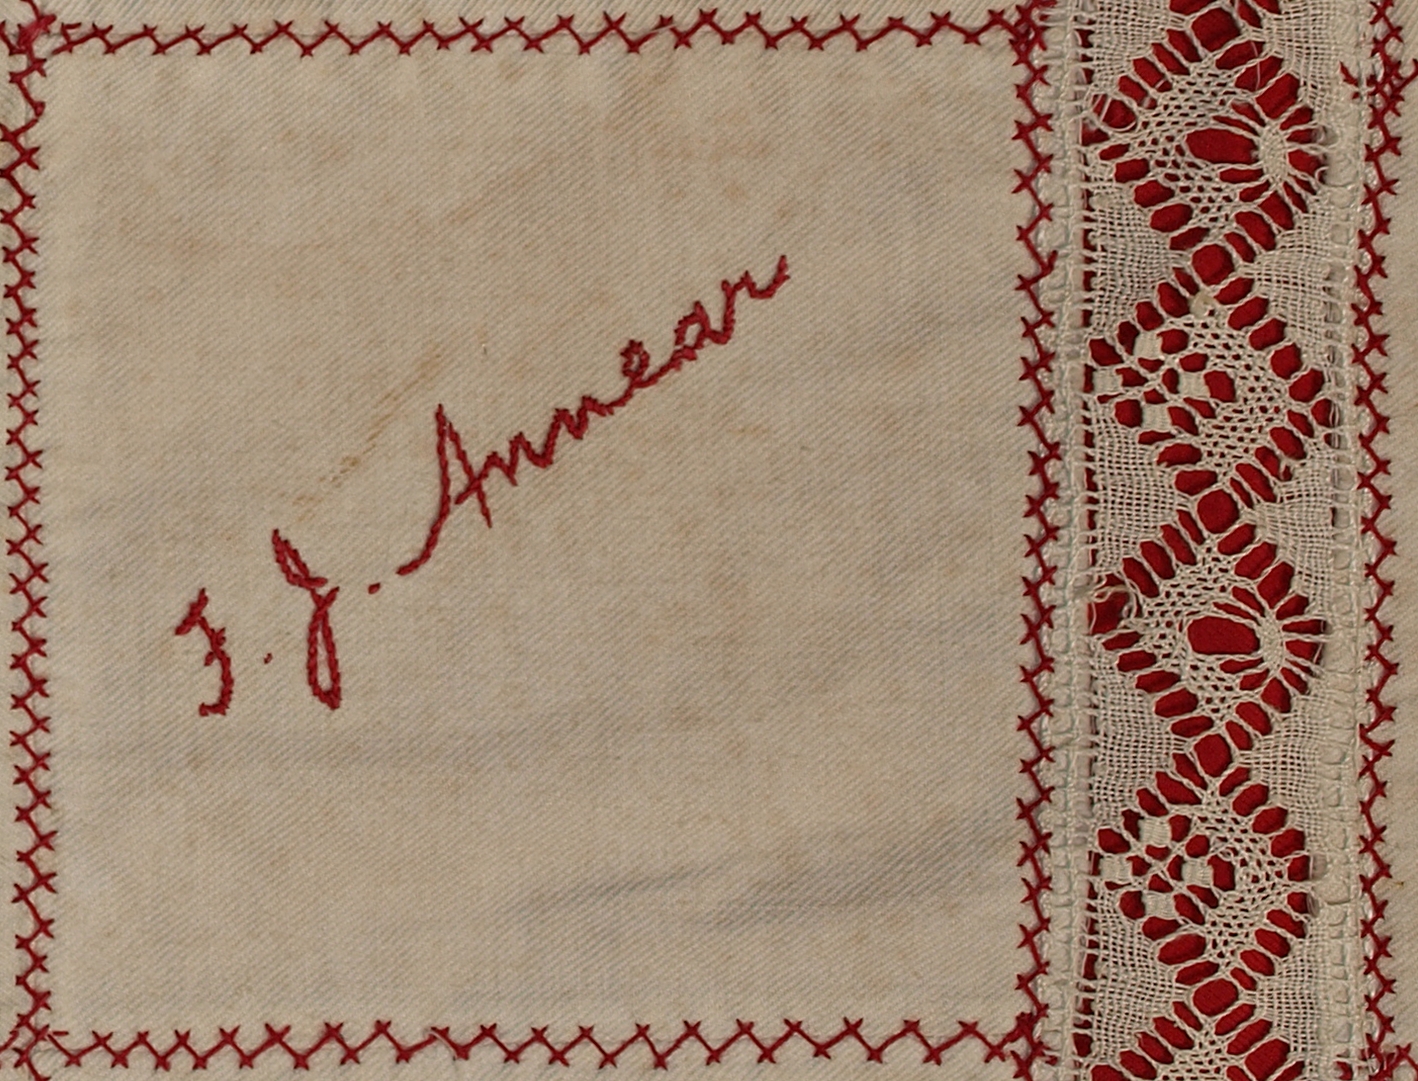 J. Annear